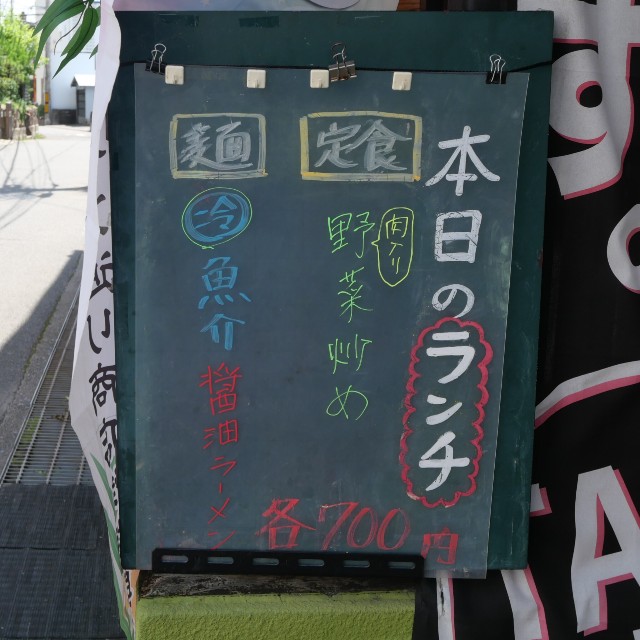 本日のランチ
定食
肉入り
野菜炒め
麺
冷
魚介
醤油ラーメン
各700円